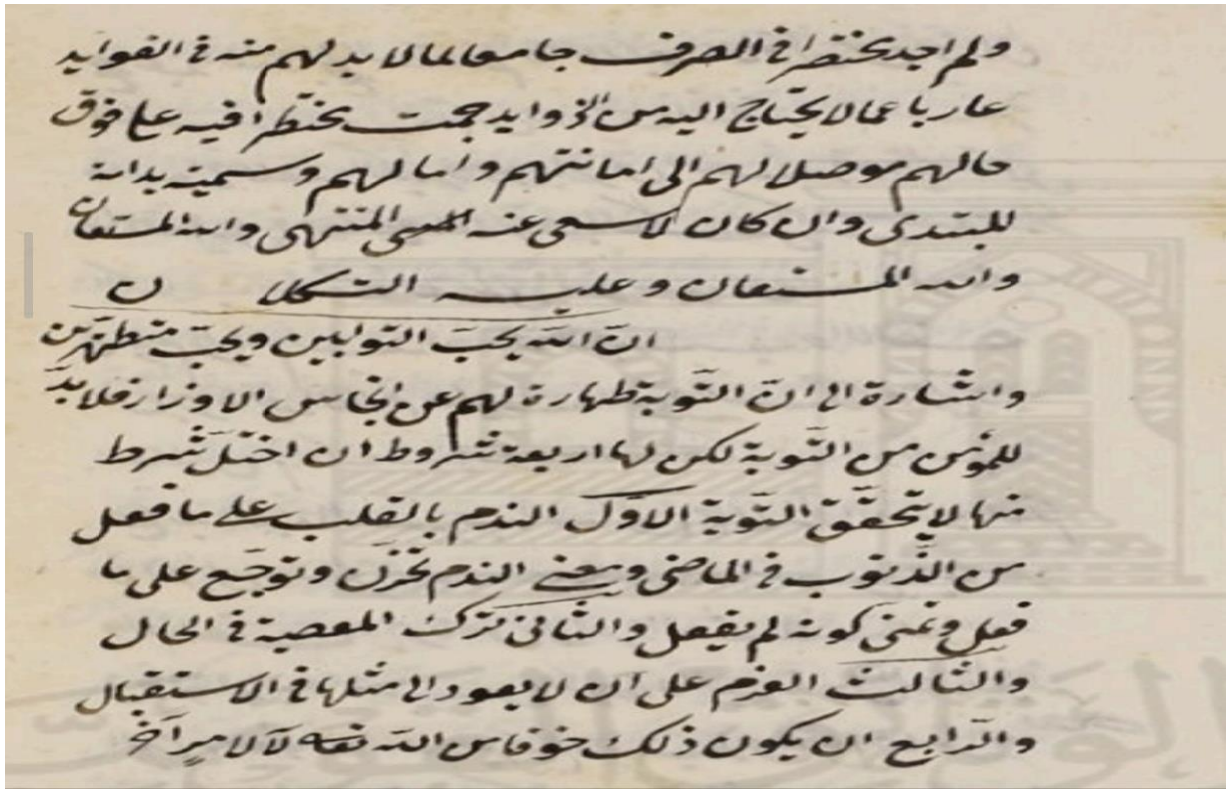 ولم اجد مختصرا في الصرف جامعا لما لا بد لهم منه في الفوايد
عاريا عما لا يحتاج اليه من الزوايد جمعت مختصرا فيه على فوق
حالهم موصلا لهم الى امانتهم وامالهم وسميته بداية
للمبتدى وان كان لا سعى عنه المنتهى والله المستعان
والله المستعان وعليه التكلان
ان الله يحب التوابين ويحب متطهرين
واشارة الى انّ التّوبة طهارة لهم عن انجاس الاوزار فلا بدّ
للمؤمن من التّوبة لكن لها اربعة شروط ان اختلّ شرط
منها لا يتحقّق التّوبة الاوّل الندم بالقلب على ما فعل
من الذّنوب في الماضى ومعنى الندم تحزّن وتوجّع على ما
فعل وتمنى كونه لم يفعل والثانى ترك المعصية في الحال
والثالث العزم على ان لا يعود الى مثلها في الاستقبال
والرّابع ان يكون ذلك خوفا من الله تعه لا لامر آخر